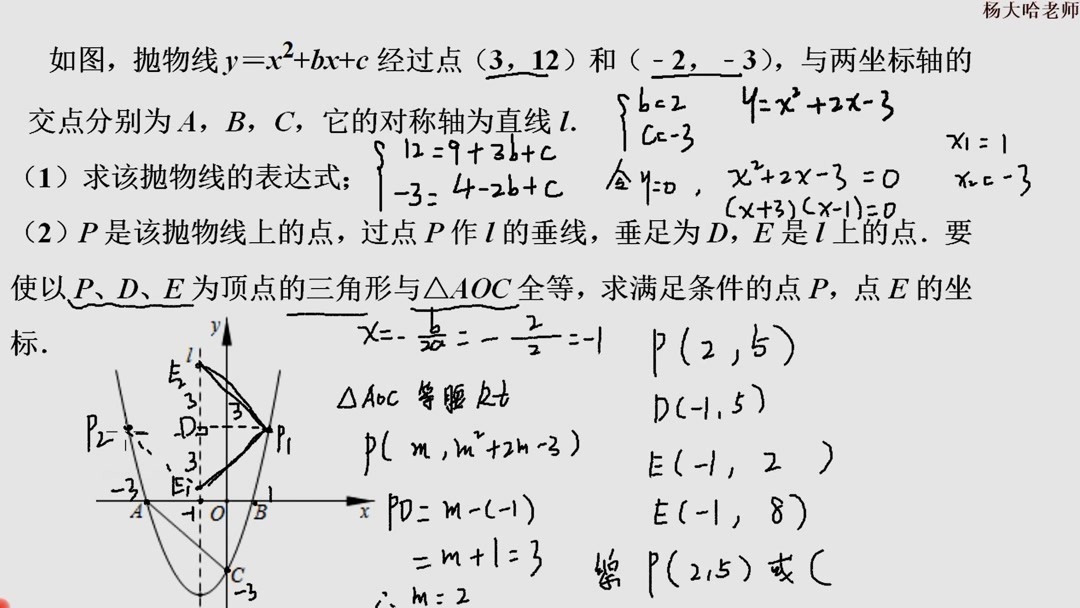 杨大哈老师
如图，抛物线 y=x²+bx+c 经过点（3，12）和（-2，-3），与两坐标轴的
交点分别为 A，B，C，它的对称轴为直线 l.
{ b=2
C=-3
y=x²+2x-3
{ 12=9+3b+c
-3=4-2b+c
（1）求该抛物线的表达式；
令y=0，x²+2x-3=0
(x+3)(x-1)=0
x₁=1
x₂=-3
（2）P 是该抛物线上的点，过点 P 作 l 的垂线，垂足为 D，E 是 l 上的点．要
使以 P、D、E 为顶点的三角形与△AOC 全等，求满足条件的点 P，点 E 的坐
标．
x=-b/2a=-2/2=-1
△AOC 等腰Rt
P(m,m²+2m-3)
PD=m-(-1)
=m+1=3
∴m=2
P(2,5)
D(-1,5)
E(-1,2)
E(-1,8)
P(2,5)或(
y
l
E₂
3
3
P₂
D
P₁
3
E₁
-3
A
-1
O
B
1
x
C
-3